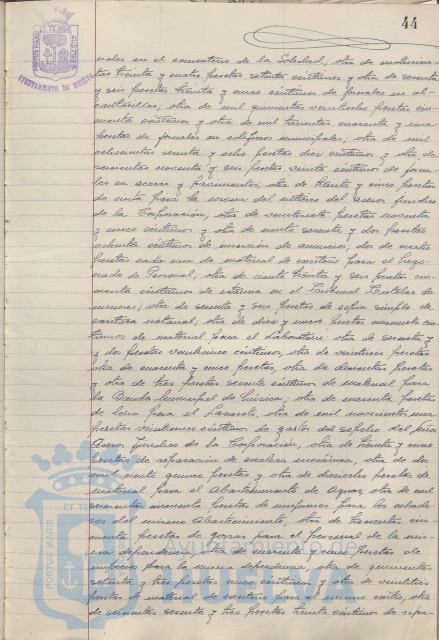 44
PORTUS MARIS ET TERRÆ
AYUNTAMIENTO DE HUELVA
nales en el cementerio de la Soledad, otra de
tas treinta y cuatro pesetas setenta céntimos y otra de sesenta
y seis pesetas treinta y cinco céntimos de jornales en al-
cantarillas, otra de mil quinientas veintiocho pesetas cin-
cuenta céntimos y otra de mil trescientas cuarenta y una
pesetas de jornales en edificios municipales; otra de mil
ochocientas setenta y ocho pesetas diez céntimos y otra de
noventa y seis pesetas veinte céntimos de jorna-
les en aceras y pavimentos; otra de treinta y cinco pesetas
de cinta para la corona del entierro del asesor jurídico
de la Corporación; otra de veintisiete pesetas noventa
y cinco céntimos y otra de ciento setenta y dos pesetas
ochenta céntimos de inserción de anuncios; dos de cuatro
pesetas cada una de material de escritorio para el Nego-
ciado de Personal; otra de ciento treinta y seis pesetas cin-
cuenta céntimos de estancia en el Tribunal Tutelar de
menores; otra de sesenta y seis pesetas de copia simple de
escritura notarial; otra de diez y nueve pesetas cincuenta cén-
timos de material para el Laboratorio; otra de sesenta y
y dos pesetas veinticinco céntimos, otra de veintiseis pesetas
otra de cuarenta y cinco pesetas, otra de doscientas pesetas
y otra de tres pesetas sesenta céntimos de material para
la Banda Municipal de Música; otra de cuarenta pesetas
de leña para el Lazareto, otra de mil novecientas una
pesetas veinticinco céntimos de gastos del sepelio del
Asesor Jurídico de la Corporación, otra de treinta y cinco
pesetas de reparación de escalera mecánica, otra de dos
mil ciento quince pesetas y otra de dieciocho pesetas de
material para el Abastecimiento de Aguas, otra de mil
cincuenta pesetas de uniformes para los
res del mismo Abastecimiento, otra de trescientas cin-
cuenta pesetas de gorras para el personal de la mis-
ma dependencia, otra de cuarenta y cinco pesetas de
impresos para la misma dependencia; otra de quinientas
setenta y tres pesetas cinco céntimos y otra de veintitrés
pesetas de material de escritorio para el mismo centro, otra
de seiscientas sesenta y tres pesetas treinta céntimos de repa-
PORTUS MARIS ET TERRÆ
Ayuntamiento de
Huelva